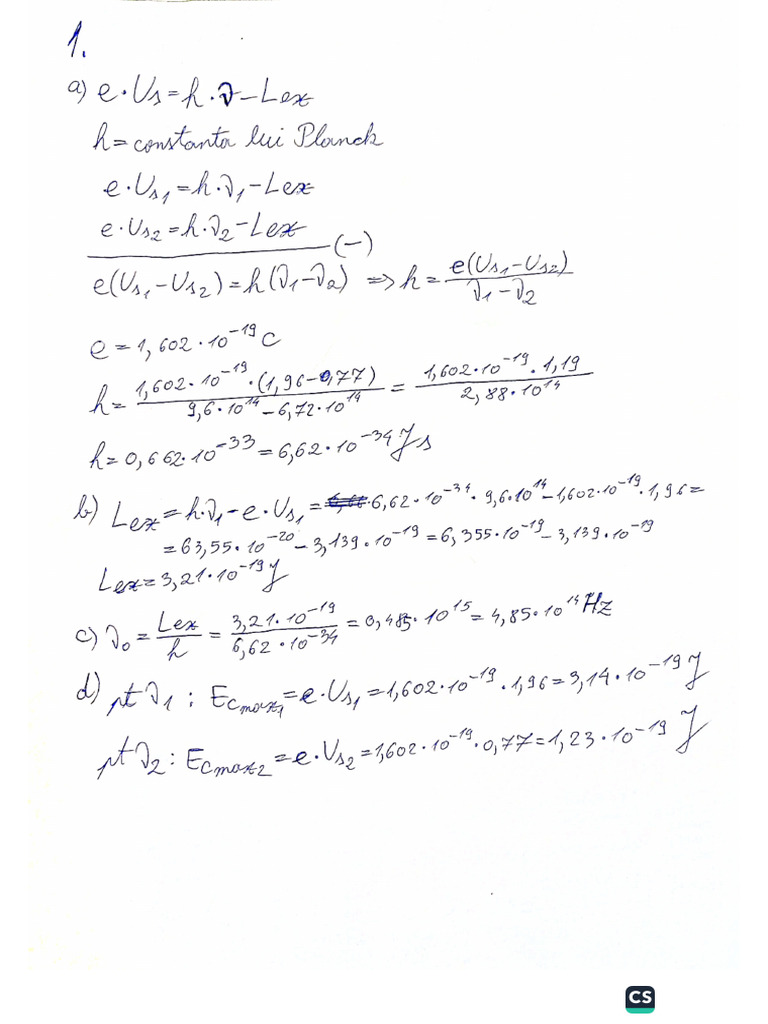 1.
a) e·Us=h·ν-Lex
h=constanta lui Planck
e·Us1=h·ν1-Lex
e·Us2=h·ν2-Lex (-)
e(Us1-Us2)=h(ν1-ν2) => h= e(Us1-Us2)/ν1-ν2
e=1,602·10^-19 C
h= 1,602·10^-19·(1,96-0,77)/9,6·10^14-6,72·10^14 = 1,602·10^-19·1,19/2,88·10^14
h=0,662·10^-33=6,62·10^-34 Js
b) Lex=h·ν1-e·Us1= 6,62·10^-34·9,6·10^14-1,602·10^-19·1,96=
=63,55·10^-20-3,139·10^-19=6,355·10^-19-3,139·10^-19
Lex=3,21·10^-19 J
c) ν0= Lex/h = 3,21·10^-19/6,62·10^-34 =0,485·10^15=4,85·10^14 Hz
d) pt ν1: Ecmax1=e·Us1=1,602·10^-19·1,96=3,14·10^-19 J
pt ν2: Ecmax2=e·Us2=1,602·10^-19·0,77=1,23·10^-19 J
CS